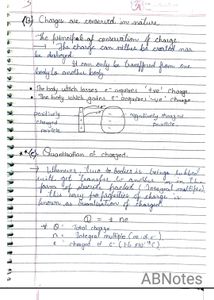 (B) Charges are conserved in nature.
The principal of conservation of charge
→ The charge can neither be created nor
be destroyed.
It can only be transffered from one
body to another body.
• The body which losses e⁻ acquires '+ve' charge
• The body which gains e⁻ acquires '-ve' charge
positively
charged
particle
Negatively charged
particle.
(C) Quantisation of charged.
→ Whenever two bodies is being rubbed
with get transfer to another in the
form of stored packet (Integral multiples)
this property of charge is
known as Quantisation of charges
Q = ± ne
Q = Total charge
n = Integral multiple
e = charged of e⁻
ABNotes